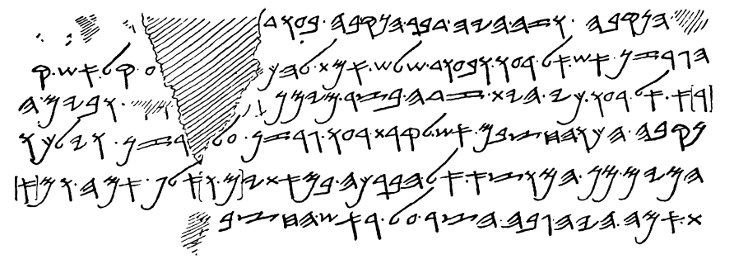 𐤄𐤍𐤒𐤁𐤄.𐤅𐤆𐤄.𐤄𐤉𐤄.𐤃𐤁𐤓.𐤄𐤍𐤒𐤁𐤄.𐤁𐤏𐤅𐤃
𐤄𐤂𐤓𐤆𐤍.𐤀𐤔.𐤀𐤋.𐤓𐤏𐤅.𐤅𐤁𐤏𐤅𐤃.𐤔𐤋𐤔.𐤀𐤌𐤕.𐤋𐤄𐤍 𐤏.𐤒𐤋.𐤀𐤔.𐤒
[𐤓]𐤀.𐤀𐤋.𐤓𐤏𐤅.𐤊𐤉.𐤄𐤉𐤕.𐤆𐤃𐤄.𐤁𐤑𐤓.𐤌𐤉𐤌𐤍 .𐤅𐤁𐤉𐤌.𐤄
𐤍𐤒𐤁𐤄.𐤄𐤊𐤅.𐤄𐤇𐤑𐤁𐤌.𐤀𐤔.𐤋𐤒𐤓𐤕.𐤓𐤏𐤅.𐤂𐤓𐤆𐤍.𐤏𐤋. 𐤓𐤆𐤍.𐤅𐤉𐤋𐤊𐤅
𐤄𐤌𐤉𐤌.𐤌𐤍.𐤄𐤌𐤅𐤑𐤀.𐤀𐤋.𐤄𐤁𐤓𐤊𐤄.𐤁𐤌𐤀𐤕𐤉[𐤌.𐤅]𐤀𐤋𐤐.𐤀𐤌𐤄.𐤅𐤌[𐤀]
𐤕.𐤀𐤌𐤄.𐤄𐤉𐤄.𐤂𐤁𐤄.𐤄𐤑𐤓.𐤏𐤋.𐤓𐤀𐤔.𐤄𐤇𐤑𐤁